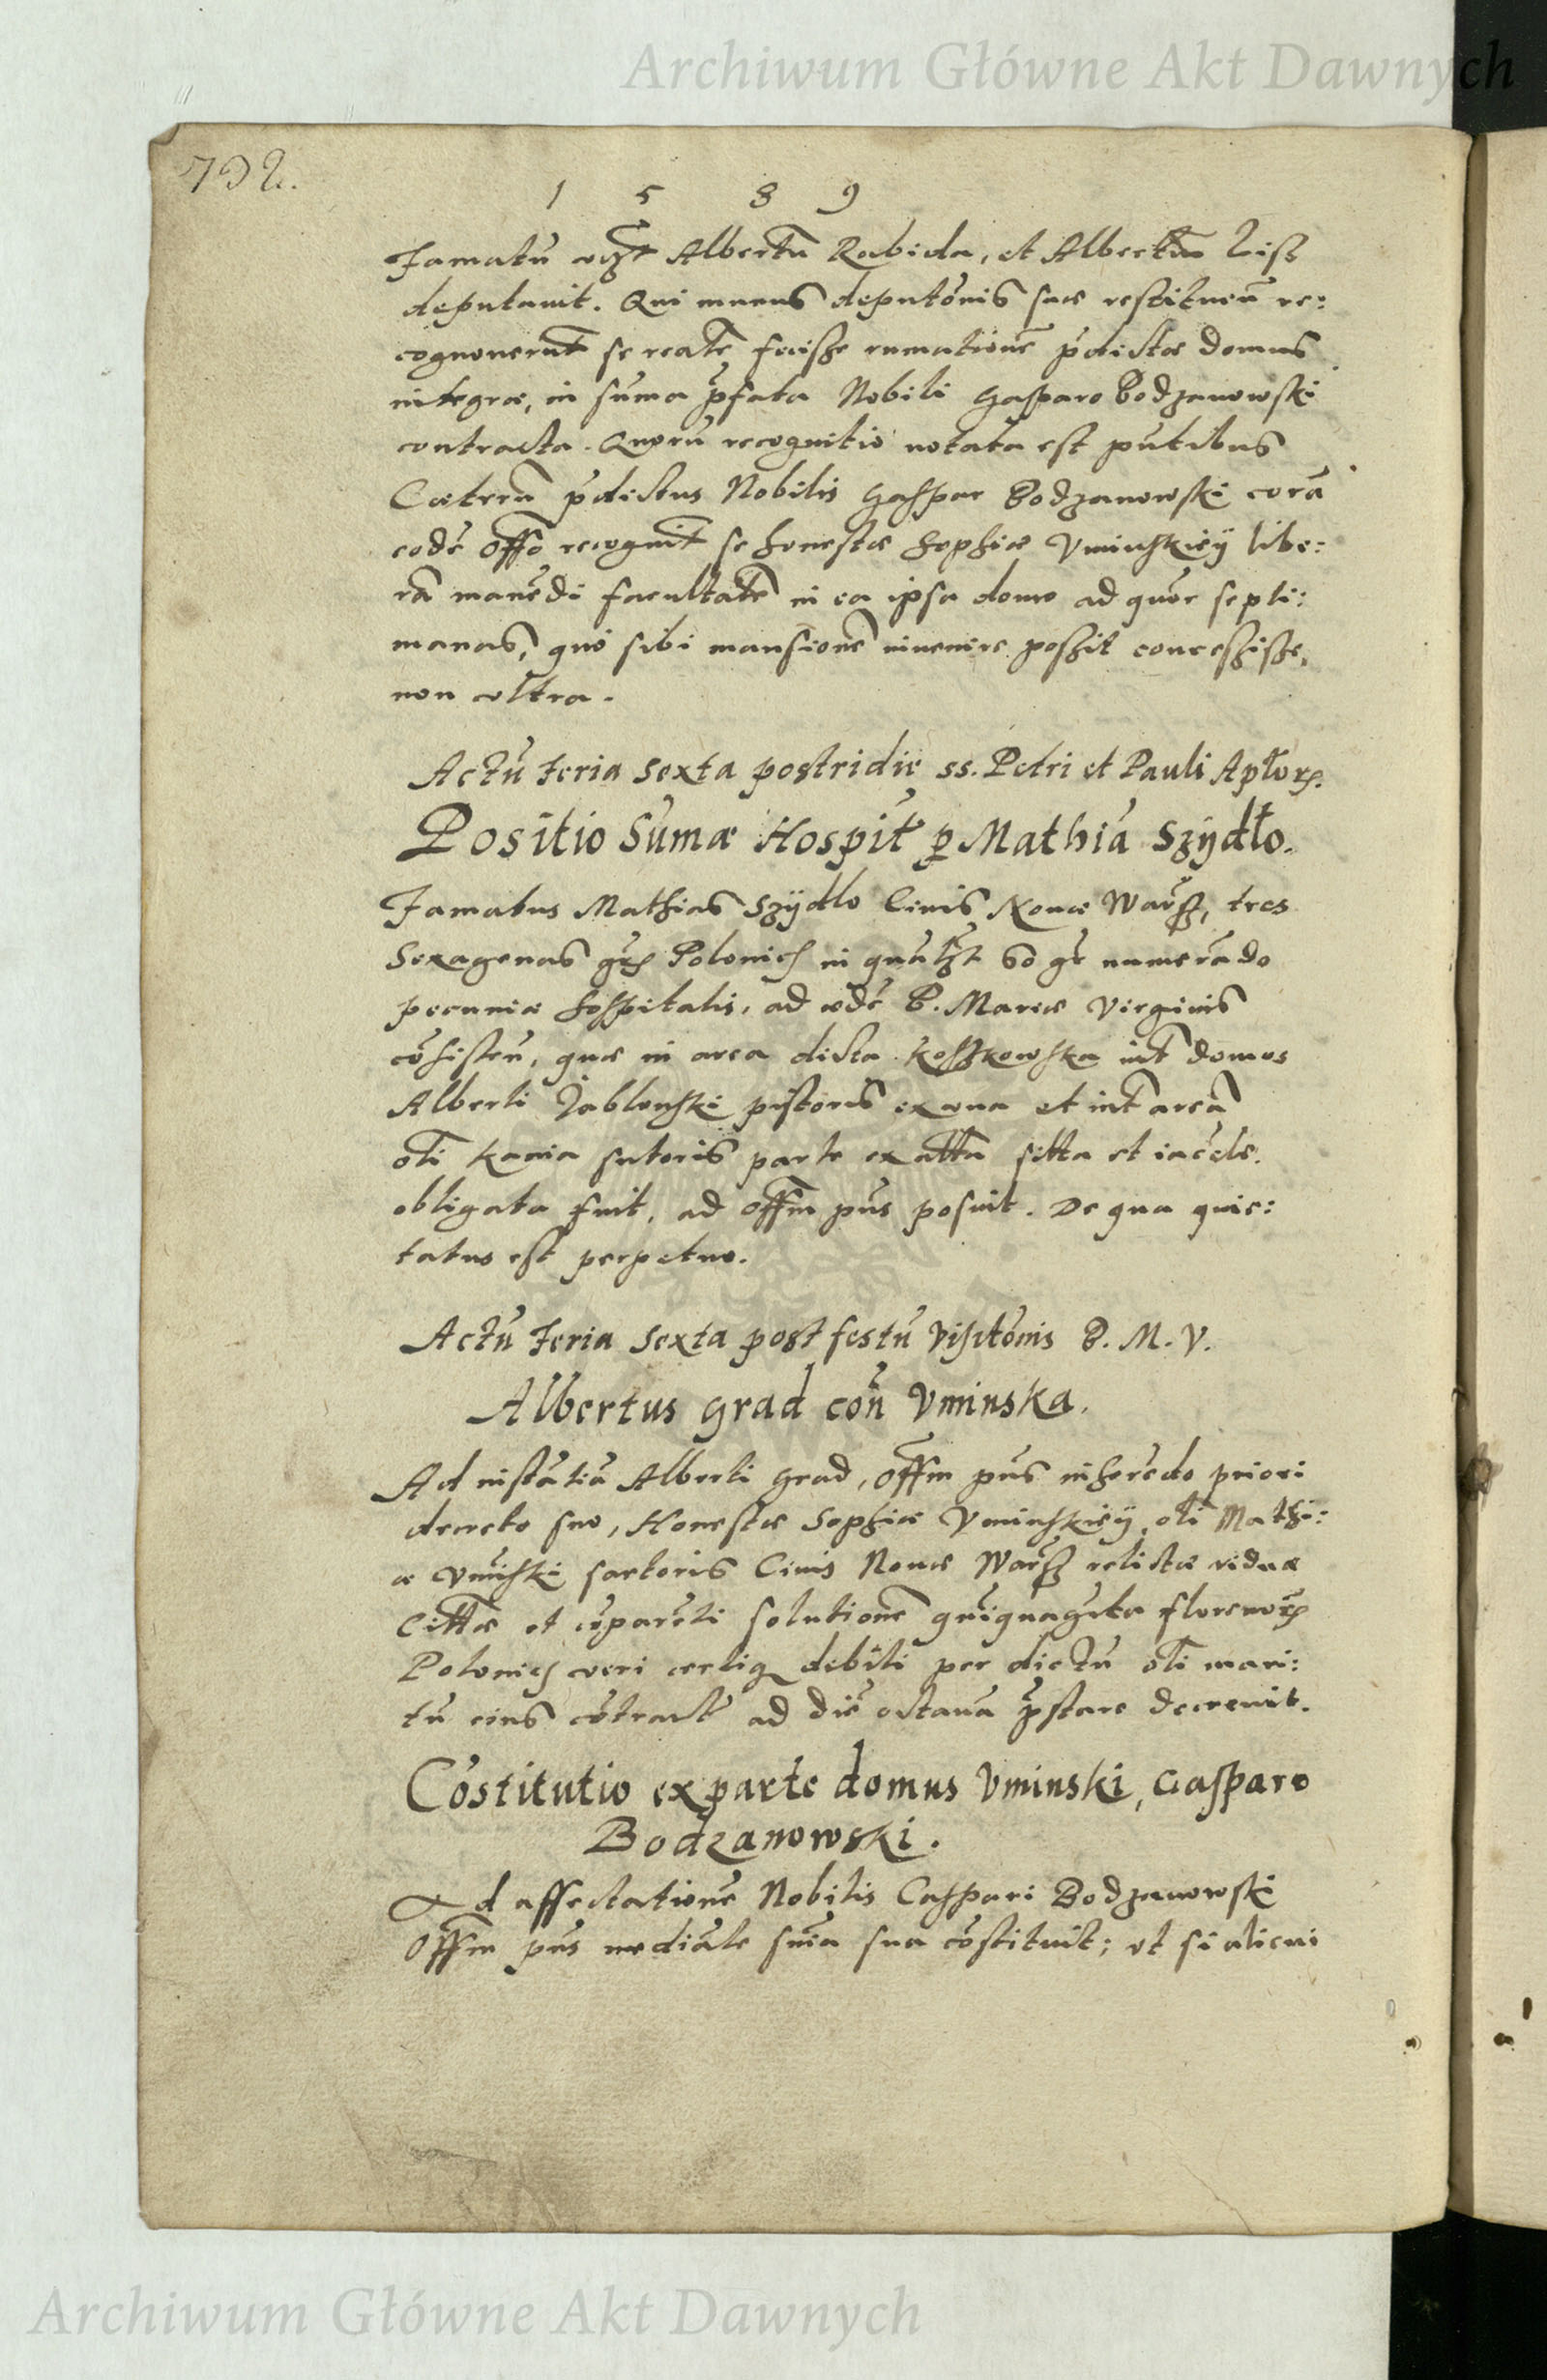 Archiwum Główne Akt Dawnych
792.
1 5 8 9
Famatū Albertū Rabida, et Albertū Lisz
deputauit. Qui munus deputōnis suae restitueñ re:
cognouerūt se reāte fecisse rumationē p̄dictae domus
integrae, in sūma p̄fata Nobili Gasparo Bodzanowski
contracta. Quorū recognitio notata est p̄ntibus
Caeterū p̄dictus Nobilis Gaspar Bodzanowski corā
eodē Offo recognit se honestae Sophiae Vminskiey libe:
rā manēdi facultatē in ea ipsa domo ad quōr septi:
manas, quō sibi mansionē inuenire possit concessisse,
non vltra.
Actū feria sexta postridie ss. Petri et Pauli Aplōr.
Positio Sūmae Hospit p Mathiā Szydło.
Famatus Mathias Szÿdlo Ciuis Nouae Warsz, tres
Sexagenas gr Polonich in quālz 60 gr numerādo
pecuniae hospitalis, ad aedē B. Mariae Virginis
cōsisteñ, quae in area dicta Koszkowska int domos
Alberti Jablonski pistoris ex vna et int areā
olī Kania sutoris parte ex altā sitta et iacēte.
obligata fuit, ad Offm p̄ns posuit. De qua quie:
tatus est perpetuo.
Actū feria sexta post festū visitōnis B. M. V.
Albertus Grad cōñ Vminska.
Ad instātiā Alberti Grad, Offm p̄ns inherēdo priori
decreto suo, Honestae Sophiae Vminskiey, olī Mathi:
ae Vmīski sartoris Ciuis Nouae Warsz relictae viduae
Cittae et cōparēti solutionē quīquagīta florenor
Polonich veri certiq debiti per dictū olī mari:
tū eius cōtract ad diē octauā p̄stare decreuit.
Cōstitutio ex parte domus Vminski, Gasparo
Bodzanowski.
Ad affectationē Nobilis Caspari Bodzanowski
Offm p̄ns mediāte snīa sua cōstituit; vt si alicui
Archiwum Główne Akt Dawnych